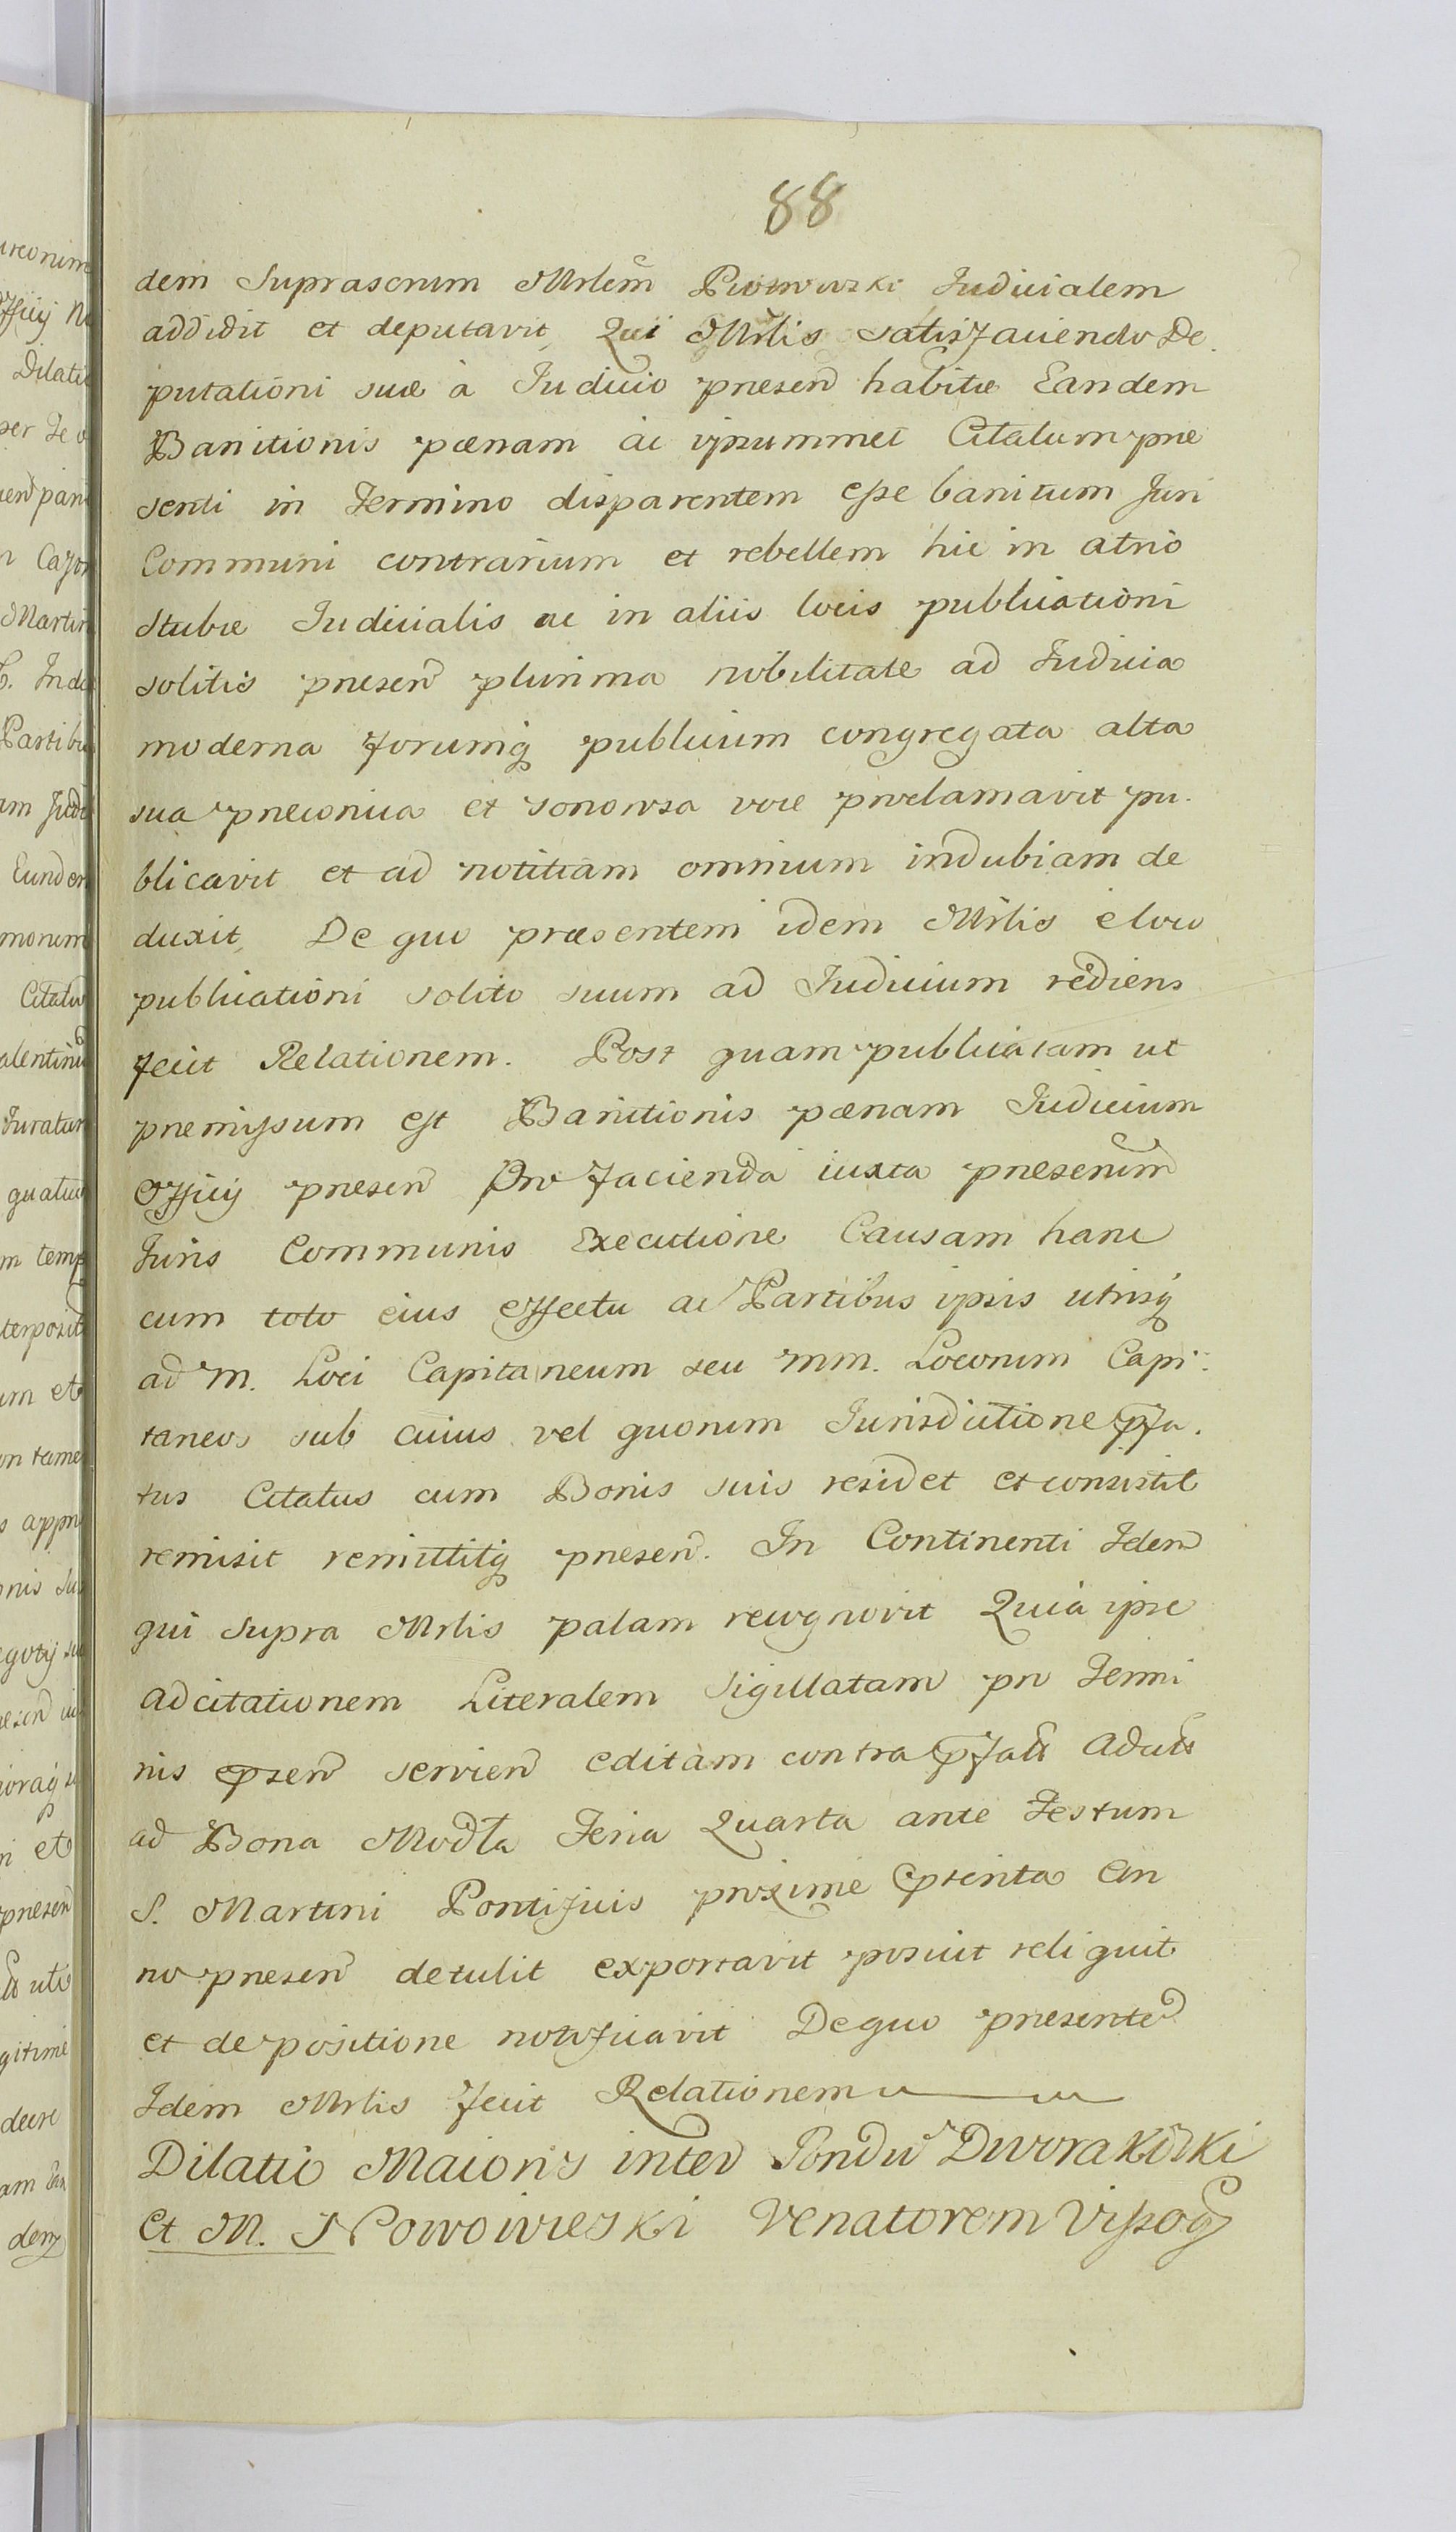 88
dem Suprascrum Mrlem Piotrowski Judicialem
addidit et deputavit, Qui Mrlis satisfaciendo De
putationi suæ à Judicio presen habitæ Eandem
Banitionis pœnam ac ipsummet Citatum pre
senti in Termino disparentem esse banitum Juri
Communi contrarium et rebellem hic in atrio
Stubæ Judicialis ac in aliis locis publicationi
solitis presen plurima nobilitate ad Judicia
moderna forumq publicum congregata alta
sua preconica et sonorosa voce proclamavit pu
blicavit et ad notitiam omnium indubiam de
duxit, De quo præsentem idem Mrlis e loco
publicationi solito suum ad Judicium rediens
fecit Relationem. Post quam publicatam ut
premissum est Banitionis pœnam Judicium
Officij presen Pro facienda iuxta preserium
Juris Communis Executione Causam hanc
cum toto eius effectu ac Partibus ipsis utrisq
ad M. Loci Capitaneum seu MM. Locorum Capi
taneos sub cuius vel quorum Jurisdictione pfa
tus Citatus cum Bonis suis residet et consistit
remisit remittitq presen. In Continenti Idem
qui supra Mrlis palam recognovit Quia ipse
adcitationem Literalem Sigillatam pro Termi
nis pzen servien editam contra pfati Adcti
ad Bona Modła Feria Quarta ante Festum
S. Martini Pontificis proxime pterita An
no presen detulit exportavit posuit reliquit
et de positione notificavit De quo presente
Idem Mrlis fecit Relationem
Dilatio Maioris inter Dwora Kiski
et M. Nowowieski Venatorem Viszog